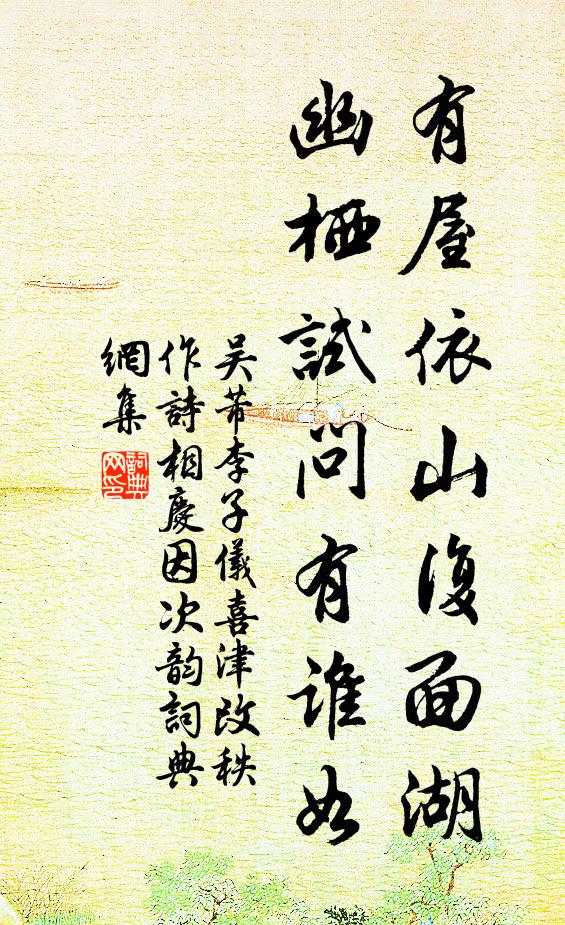 有屋依山復面湖
幽栖試問有誰如
吴芾李子儀喜津改秩
作詩相慶因次韵詞典
網集
詞典
网印